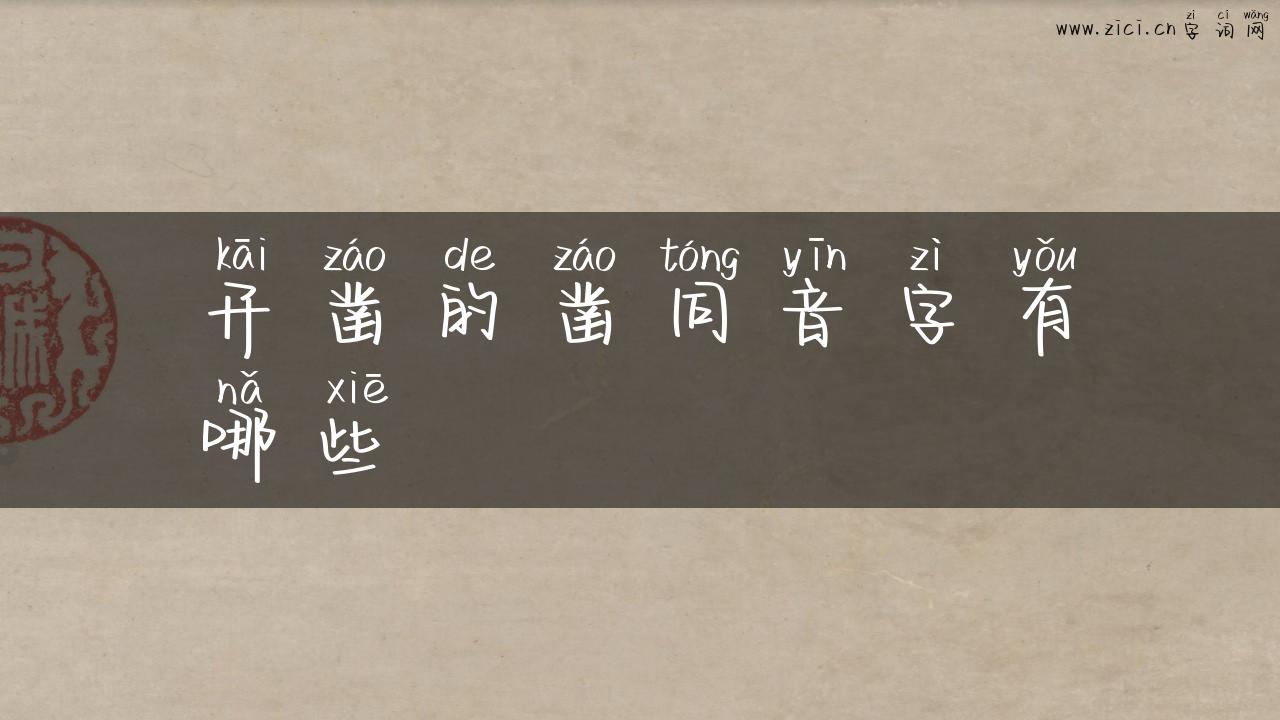 zì cí wǎng
www.zici.cn 字词网
kāi záo de záo tóng yīn zì yǒu
开凿的凿同音字有
nǎ xiē
哪些